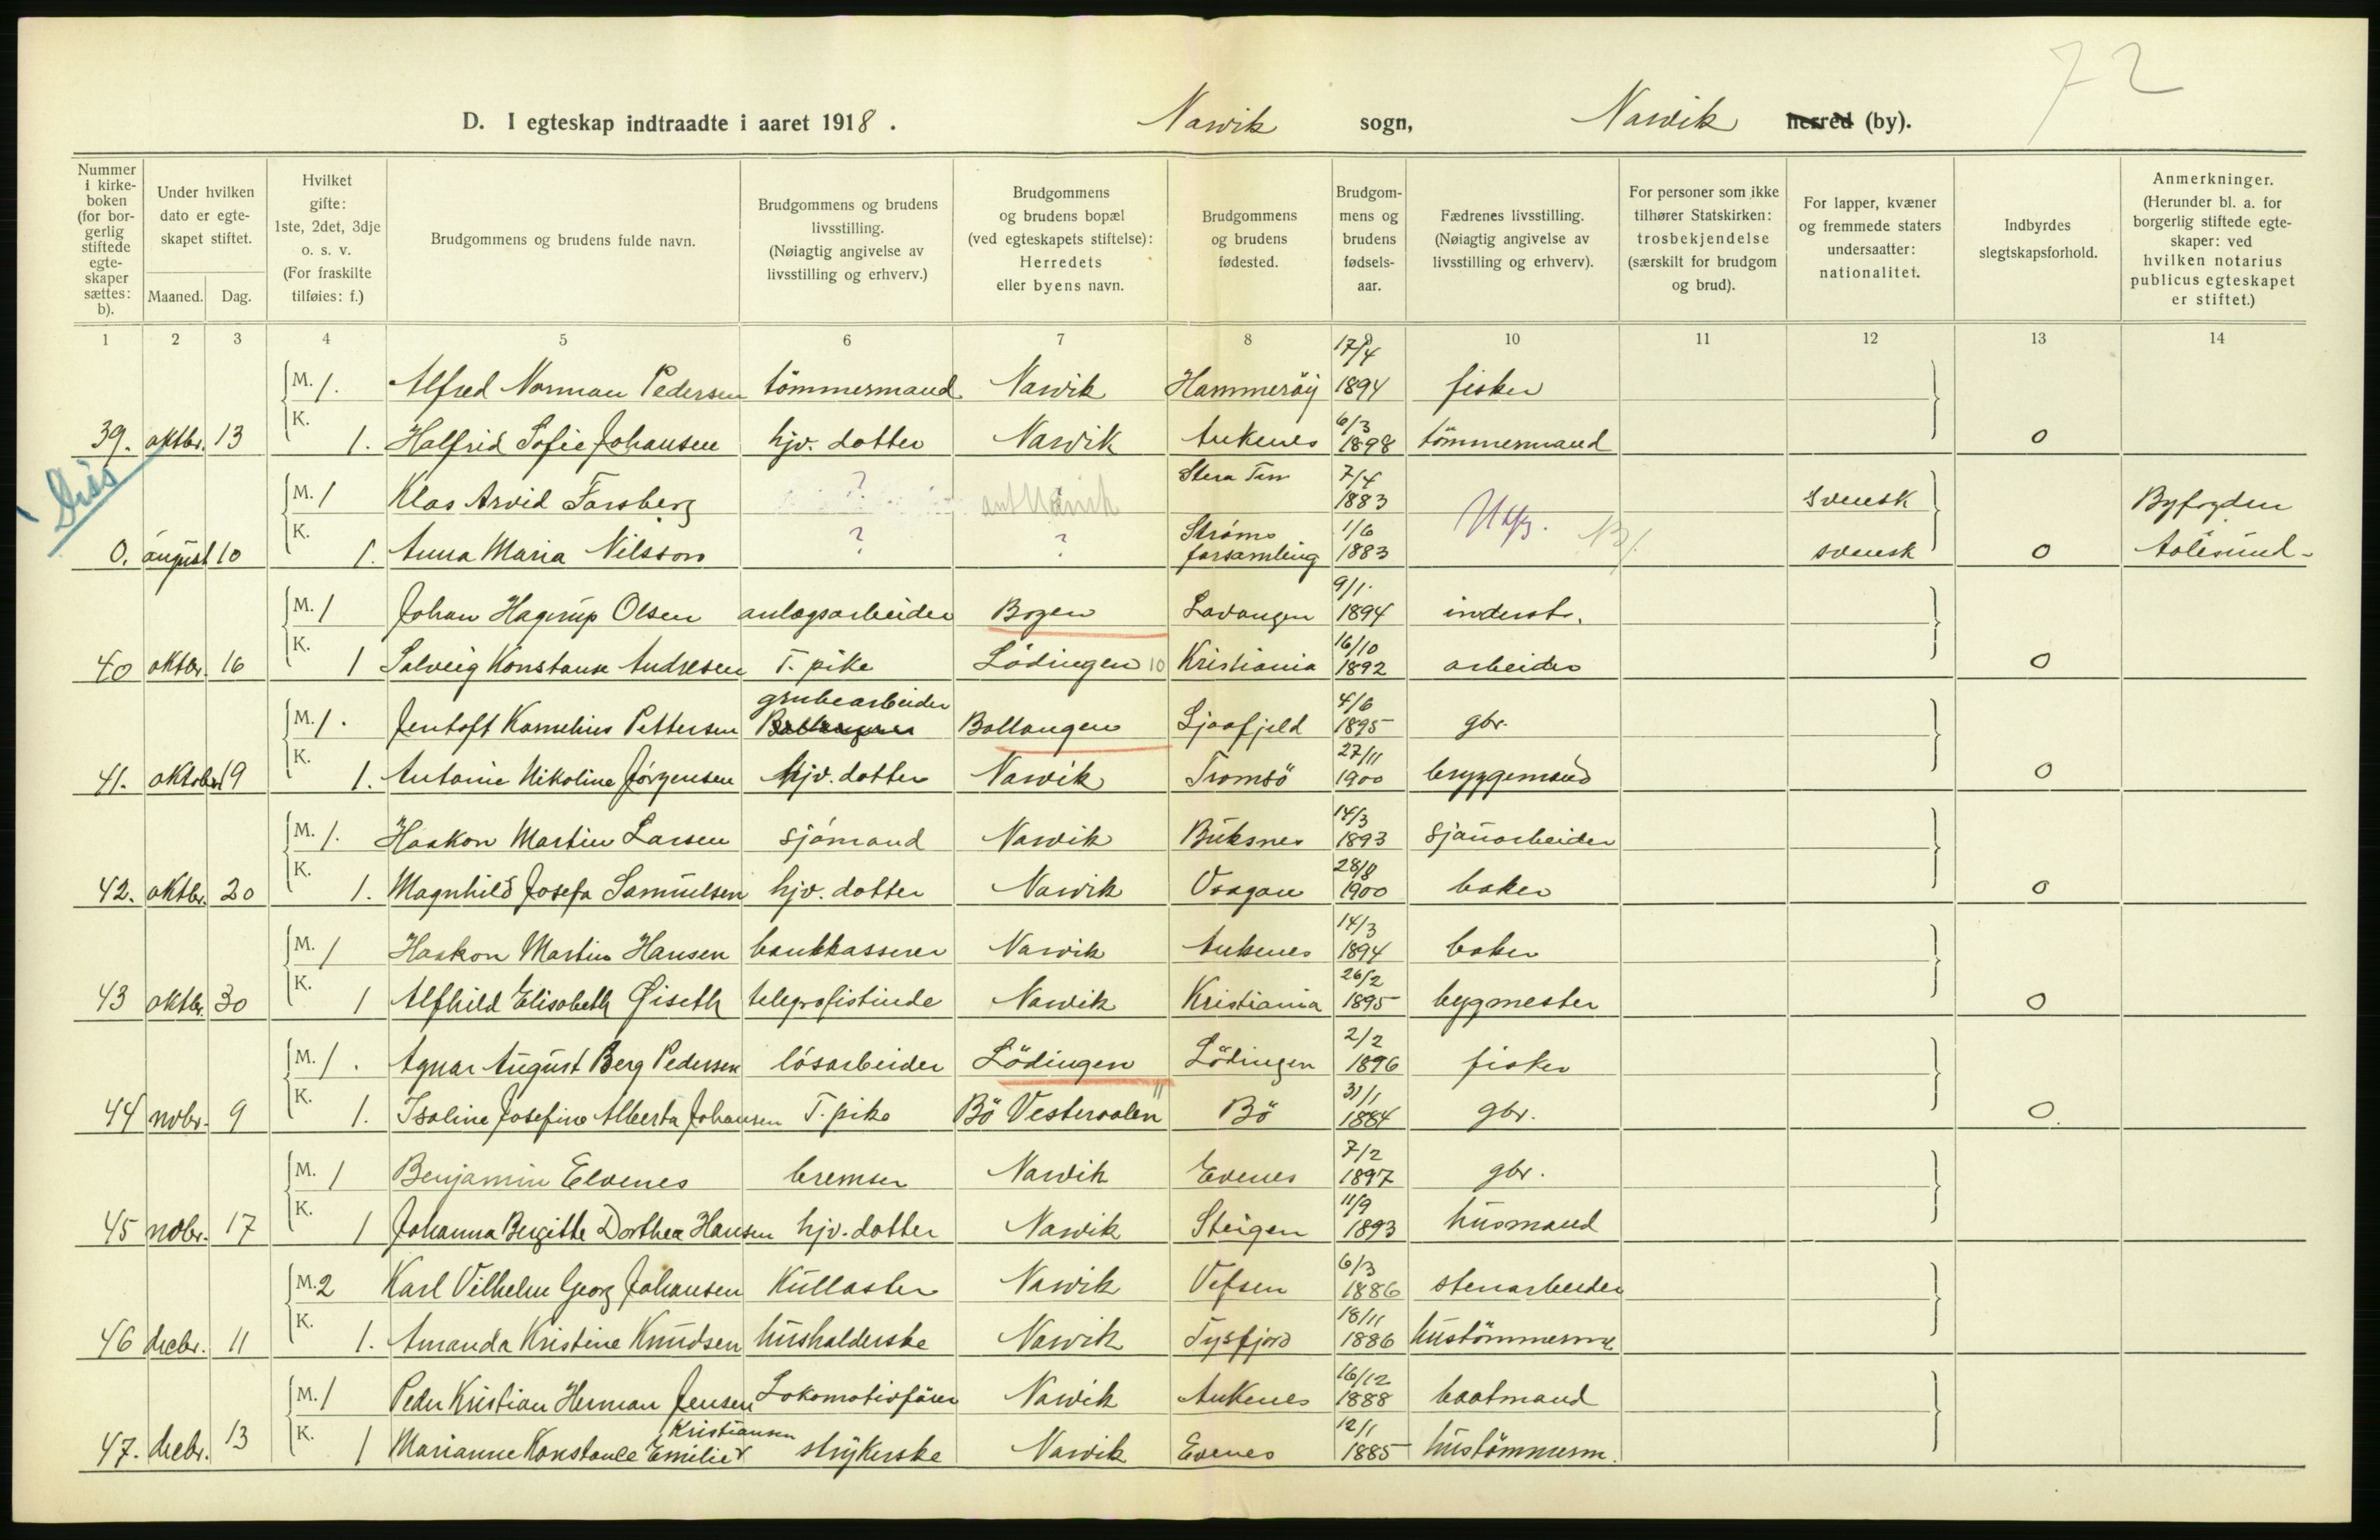 72
D. I egteskap indtraadte i aaret 1918. Narvik sogn, Narvik herred (by).
Nummer i kirkeboken (for borgerlig stiftede egteskaper sættes: b).
Under hvilken dato er egteskapet stiftet.
Maaned. Dag.
Hvilket gifte: 1ste, 2det, 3dje o. s. v. (For fraskilte tilføies: f.)
Brudgommens og brudens fulde navn.
Brudgommens og brudens livsstilling. (Nøiagtig angivelse av livsstilling og erhverv.)
Brudgommens og brudens bopæl (ved egteskapets stiftelse): Herredets eller byens navn.
Brudgommens og brudens fødested.
Brudgommens og brudens fødselsaar.
Fædrenes livsstilling. (Nøiagtig angivelse av livsstilling og erhverv).
For personer som ikke tilhører Statskirken: trosbekjendelse (særskilt for brudgom og brud).
For lapper, kvæner og fremmede staters undersaatter: nationalitet.
Indbyrdes slegtskapsforhold.
Anmerkninger. (Herunder bl. a. for borgerlig stiftede egteskaper: ved hvilken notarius publicus egteskapet er stiftet.)
1 2 3 4 5 6 7 8 9 10 11 12 13 14
M. 1. Alfred Norman Pedersen tömmermand Narvik Hammeröy 17/4 1894 fisker
39. oktbr. 13 K. 1. Halfrid Sofie Johansen hjv. datter Narvik Ankenes 6/3 1898 tömmermand 0
Diss
M. 1 Klas Arvid Forsberg ? ant Narvik Stora Tun 7/4 1883 svensk Byfogden
0. august 10 K. 1. Anna Maria Nilsson ? ? Ströms forsamling 1/6 1883 svensk 0 Aalesund.
M. 1 Johan Hagerup Olsen anlægsarbeider Bogen Lavangen 9/1. 1894 inderst.
40 oktbr. 16 K. 1 Solveig Konstanse Andresen T. pike Lödingen 10 Kristiania 16/10 1892 arbeider 0
M. 1. Jentoft Kornelius Pettersen grubearbeider Ballangen Ballangen Sjaafjeld 4/6 1895 gbr.
41. oktober 19 K. 1. Antonie Nikoline Jörgensen hjv. datter Narvik Tromsö 27/11 1900 bryggemand 0
M. 1. Haakon Martin Larsen sjömand Narvik Buksnes 14/3 1893 sjauarbeider
42. oktbr. 20 K. 1. Magnhild Josefa Samuelsen hjv. datter Narvik Vaagan 28/8 1900 baker 0
M. 1 Haakon Martin Hansen bankkasserer Narvik Ankenes 14/3 1894 baker
43 oktbr. 30 K. 1 Alfhild Elisabeth Øiseth telegrafistinde Narvik Kristiania 26/2 1895 bygmester 0
M. 1. Agnar August Berg Pedersen lösarbeider Lödingen Lödingen 2/2 1896 fisker
44 novbr. 9 K. 1. Isoline Josefine Alberta Johansen T. pike Bö Vesteraalen 11 Bö 31/1 1884 gbr. 0
M. 1 Benjamin Elvenes bremser Narvik Evenes 7/2 1897 gbr.
45 novbr. 17 K. 1 Johanna Bergitte Dorthea Hansen hjv. datter Narvik Steigen 11/9 1893 husmand
M. 2 Karl Vilhelm Georg Johansen Kullaster Narvik Vefsen 6/3 1886 stenarbeider
46 decbr. 11 K. 1. Amanda Kristine Knudsen husholderske Narvik Tysfjord 18/11 1886 hustömmerm.
M. 1 Peder Kristian Herman Jensen Lokomotivförer Narvik Ankenes 16/12 1888 baatmand
47. decbr. 13 K. 1 Marianne Konstance Emilie Kristiansen strykerske Narvik Evenes 12/1 1885 hustömmerm.